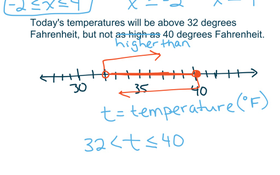 -2 ≤ x ≤ 4
Today's temperatures will be above 32 degrees
Fahrenheit, but not as high as 40 degrees Fahrenheit.
higher than
30 35 40
t = temperature (°F)
32 < t ≤ 40